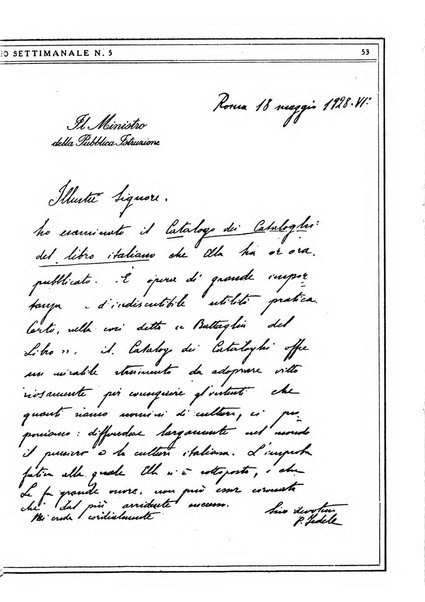 IO SETTIMANALE N. 5
53
Roma 18 maggio 1928 · VI:
Il Ministro
della Pubblica Istruzione
Illustre Signore.
ho esaminato il Catalogo dei Cataloghi
del libro italiano che Ella ha or ora
pubblicato. È opera di grande impor
tanza e d'indiscutibile utilità pratica
Certo, nella così detta « Battaglia del
Libro », il Catalogo dei Cataloghi offre
un mirabile strumento da adoprare vitto
riosamente per conseguire gl'intenti che
quanti siamo uomini di cultura, ci pro
poniamo: diffondere largamente nel mondo
il pensiero e la cultura italiana. L'improba
fatica alla quale Ella si è sottoposto, e che
Le fa grande onore, non può esser coronata
che dal più arridente successo.
Mi creda cordialmente
Suo devotissimo
P. Fedele